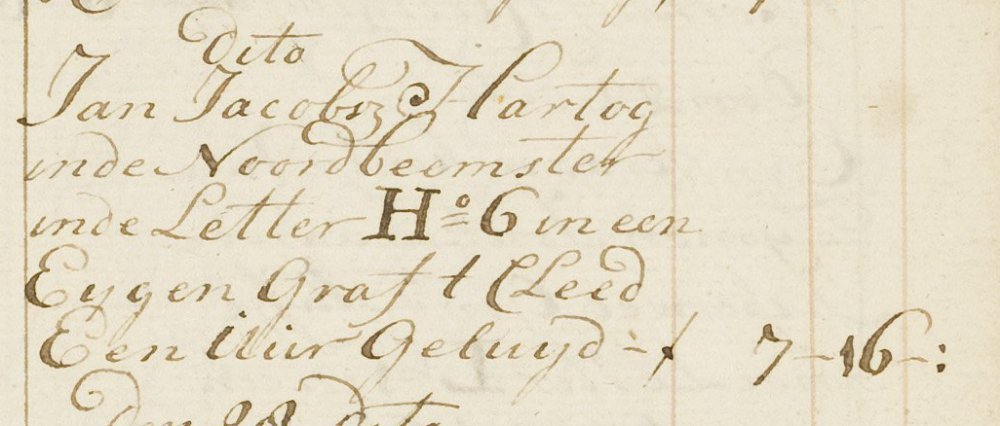 dito
Jan Jacobsz Hartog
inde Noordbeemster
inde Letter Ho 6 in een
Eygen Graf t Cleed
Een Uur Geluyd - f 7 - 16 - :
den 28 dito